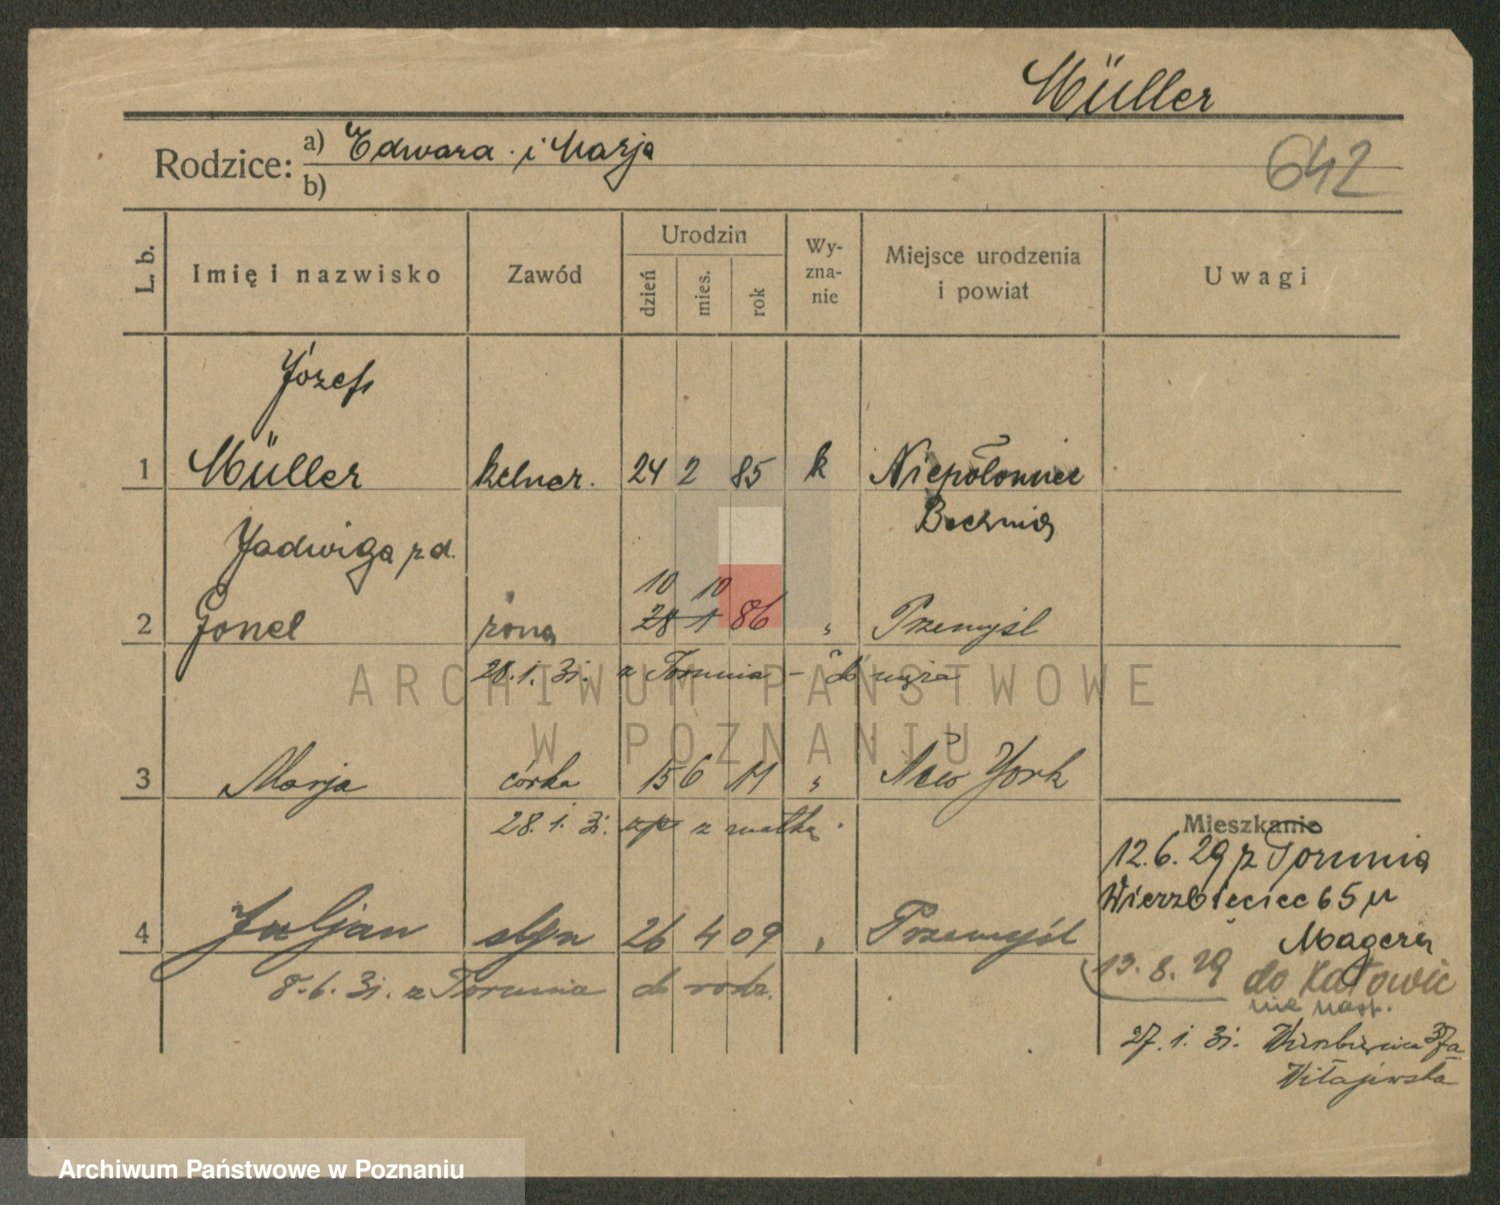 Müller
Rodzice: a) Edward i Marja
b)
642
L. b.
Imię i nazwisko
Zawód
Urodzin
dzień
mies.
rok
Wy-
zna-
nie
Miejsce urodzenia
i powiat
Uwagi
Józef
1 Müller kelner. 24 2 85 k Niepołomice
Bochnia
Jadwiga zd.
10 10
2 Fonel żona 28 1 86 " Przemyśl
28.1.31. z Torunia - do męża
3 Marja córka 15 6 11 " New York
28.1.31. z matką.
4 Juljan syn 26 4 09 " Przemyśl
8.6.31. z Torunia do rodz.
Mieszkanie
12.6.29 z Torunia
Wierzbięcice 65 u
Magera
13.8.29 do Katowic
nie nast.
27.1.31. Wierzbięcice 37a
Witajewska
ARCHIWUM PAŃSTWOWE
W POZNANIU
Archiwum Państwowe w Poznaniu